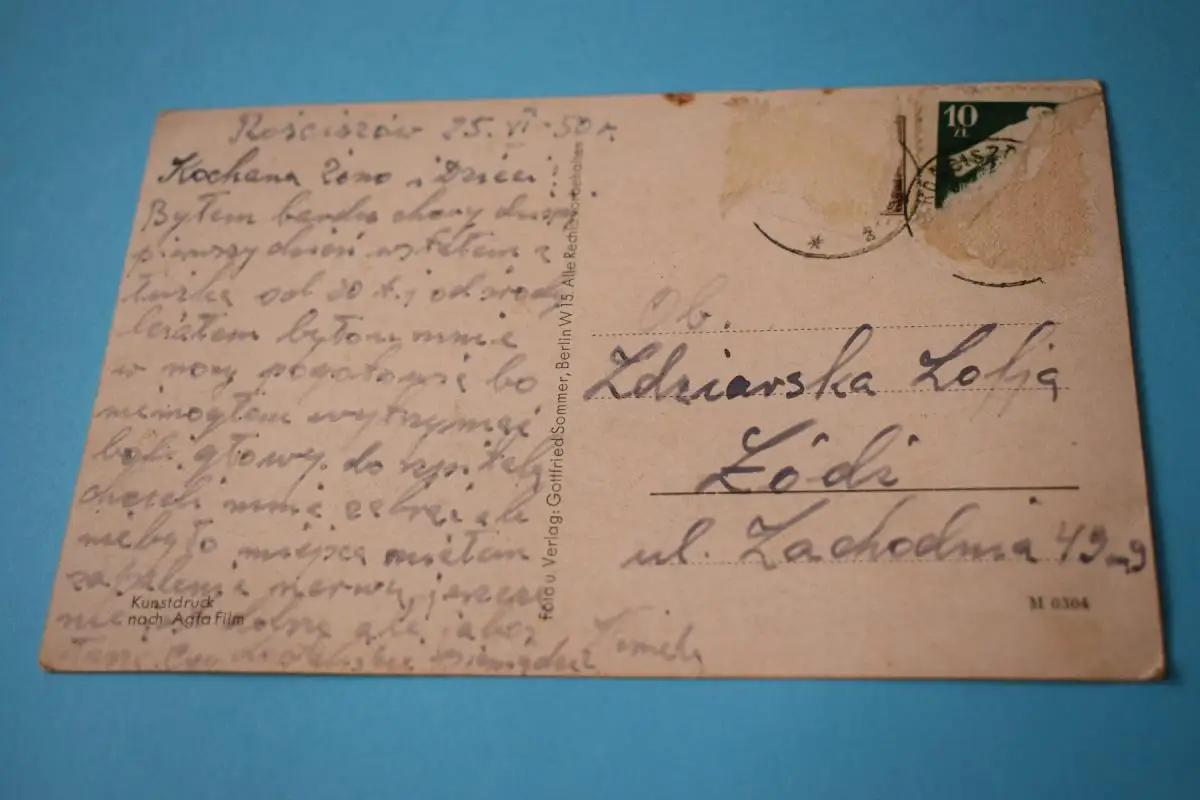 Rościszów 25. VI - 50 r.
Kochana Żono i Dzieci
Byłem bardzo chory dziś
pierwszy dzień wstałem z
łużka od 20 t.j od środy
leżałem było u mnie
w nocy pogotowie bo
niemogłem wytrzymać
bóli głowy do szpitaly
chcieli mnie zabrać ale
niebyło miejsca miałem
zapalenie nerwu jeszcze
nie
Kunstdruck
nach Agfa Film
Foto u. Verlag: Gottfried Sommer, Berlin W 15. Alle Rechte vorbehalten
10
ZŁ
Ob.
Zdziarska Zofja
Łódź
ul. Zachodnia 49 m 9
M 0304